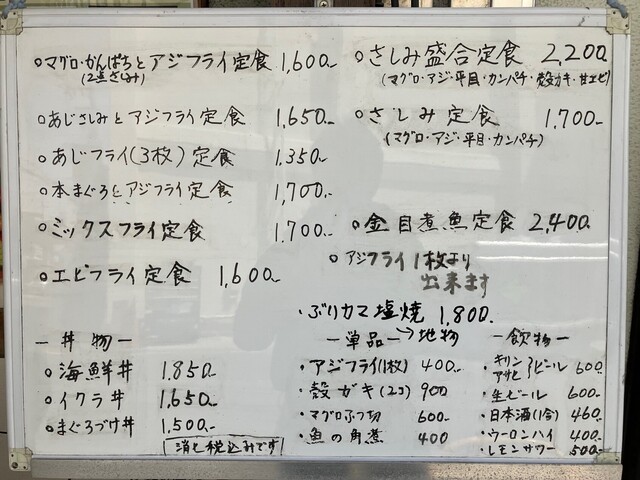 ○マグロ・かんぱちとアジフライ定食 1,600-
(2点さしみ)
○あじさしみとアジフライ定食 1,650-
○あじフライ(3枚)定食 1,350-
○本まぐろとアジフライ定食 1,700-
○ミックスフライ定食 1,700-
○エビフライ定食 1,600-
ー丼物ー
○海鮮丼 1,850-
○イクラ丼 1,650-
○まぐろづけ丼 1,500-
消ヒ税込みです
○さしみ盛合定食 2,200-
(マグロ・アジ・平目・カンパチ・殻ガキ・甘エビ)
○さしみ定食 1,700-
(マグロ・アジ・平目・カンパチ)
○金目煮魚定食 2,400-
○アジフライ1枚より
出来ます
・ぶりカマ塩焼 1,800-
ー単品ー→地物
・アジフライ(1枚) 400-
・殻ガキ(2コ) 900
・マグロぶつ切 600-
・魚の角煮 400
ー飲物ー
・キリン アサヒ }ビール 600-
・生ビール 600-
・日本酒(1合) 460-
・ウーロンハイ 400-
・レモンサワー 500-